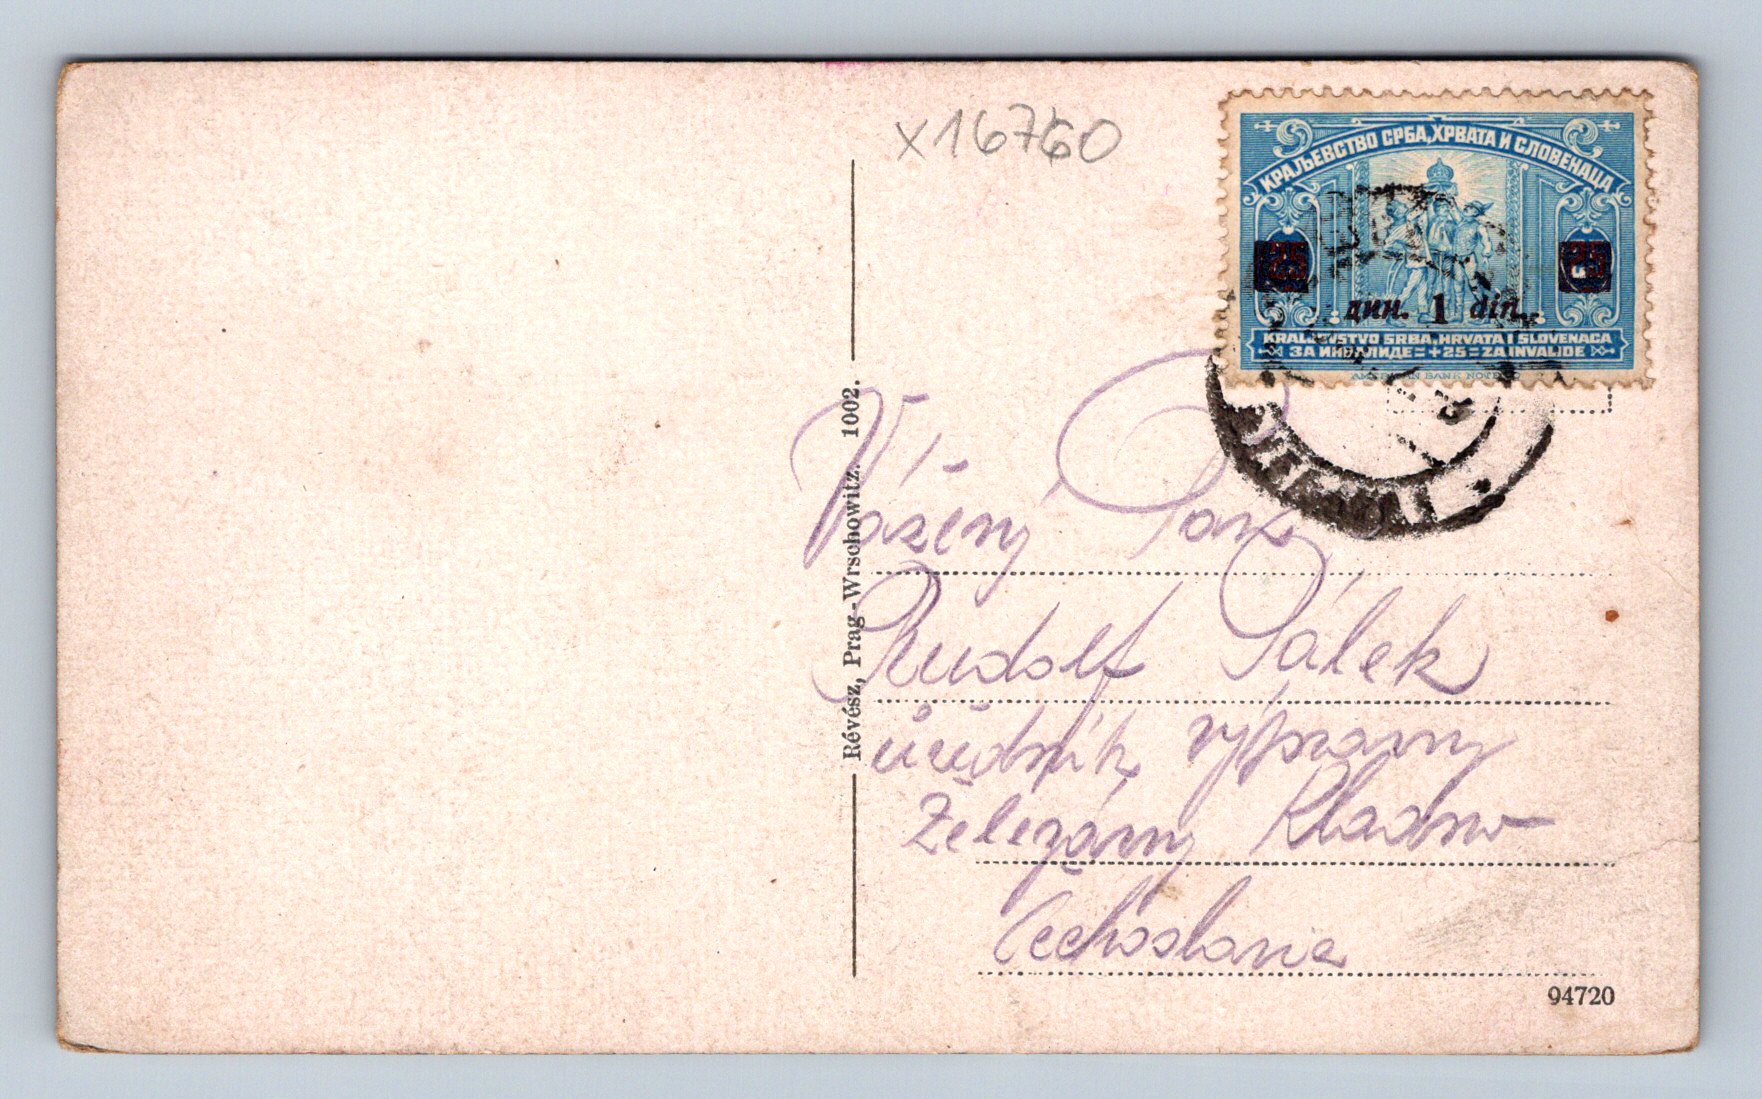 x16760
КРАЉЕВСТВО СРБА, ХРВАТА И СЛОВЕНАЦА
25 25
дин. 1 din.
KRALJEVSTVO SRBA, HRVATA I SLOVENACA
ЗА ИНВАЛИДЕ = +25 = ZA INVALIDE
AMERICAN BANK NOTE CO
Révész, Prag-Wrschowitz. 1002.
Vážený Pan
Rudolf Pálek
úředník výpravny
Železárny Kladno
Čechoslovakie
94720